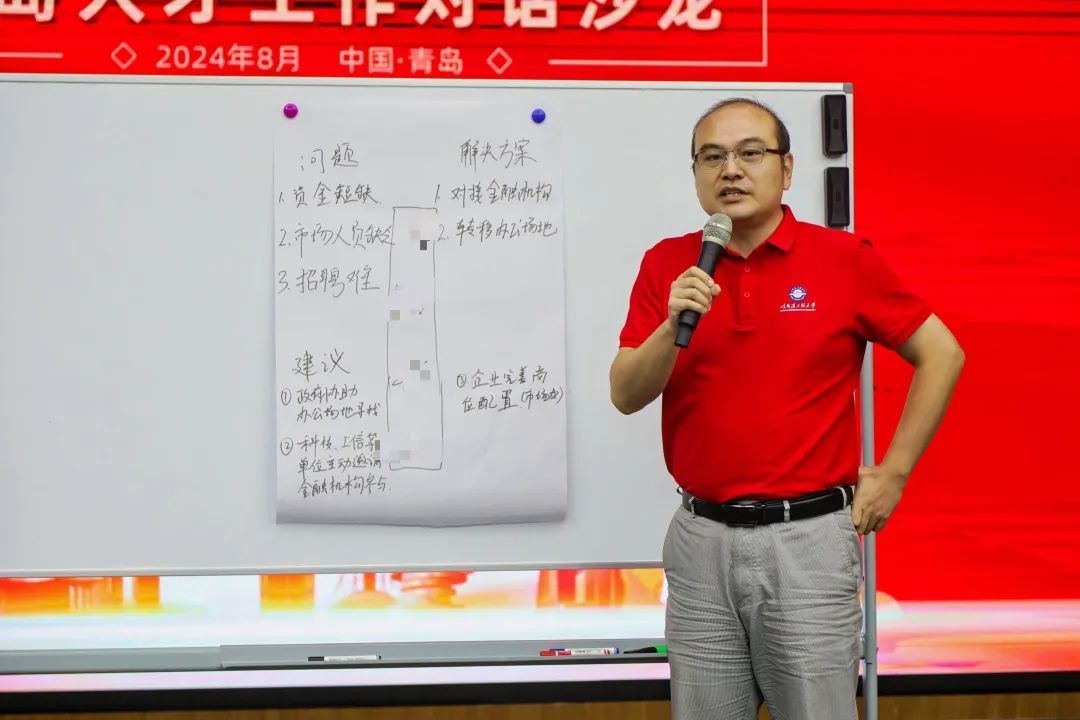 岛人才工作对话沙龙
2024年8月 中国·青岛
问题
1. 资金短缺
2. 市场人员缺乏
3. 招聘难
解决方案
1. 对接金融机构
2. 转移办公场地
建议
① 政府协助
办公场地寻找
② 科技、工信等
单位主动邀请
金融机构参与.
③ 企业完善岗
位配置(市场部)
哈尔滨工程大学